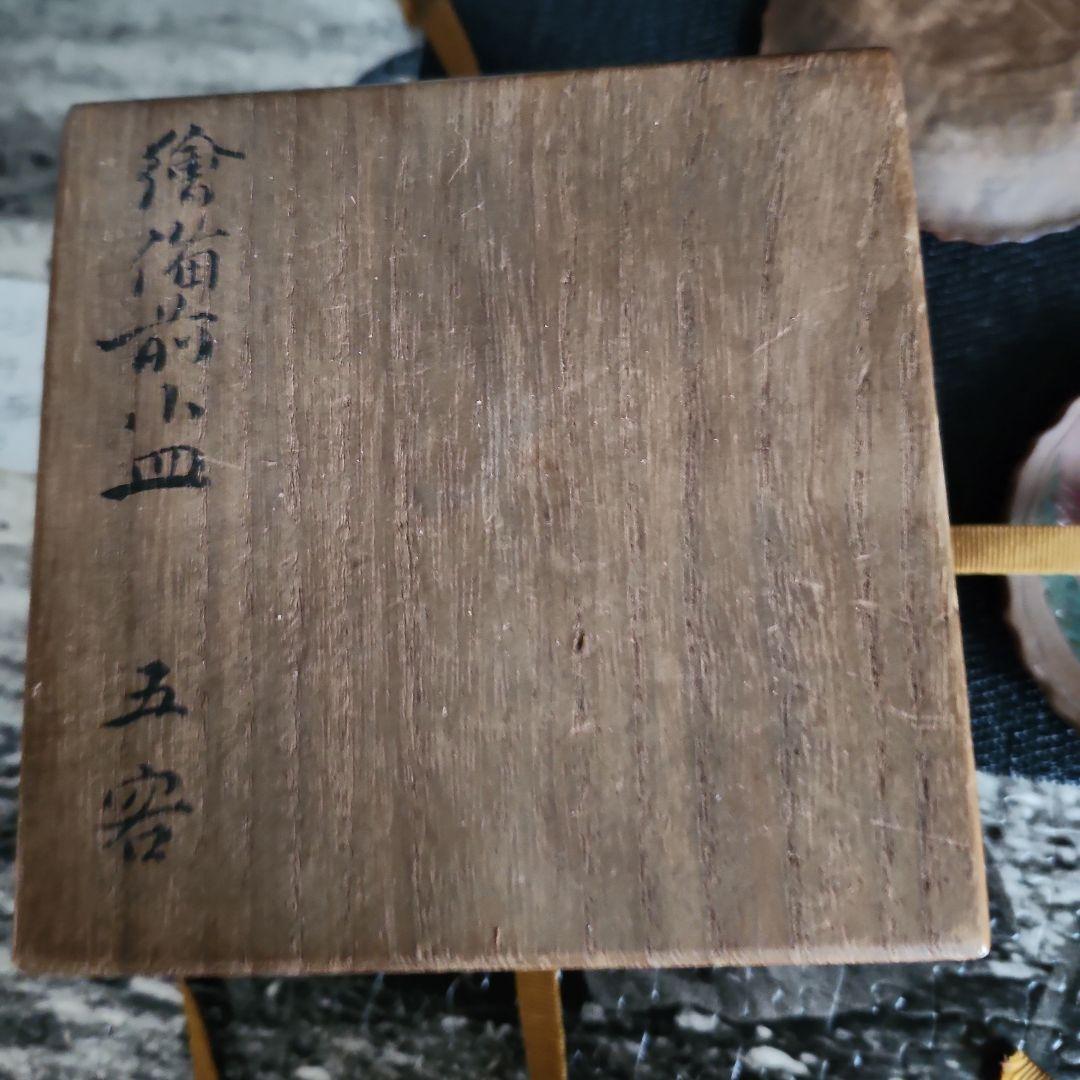 繪備前小皿 五客